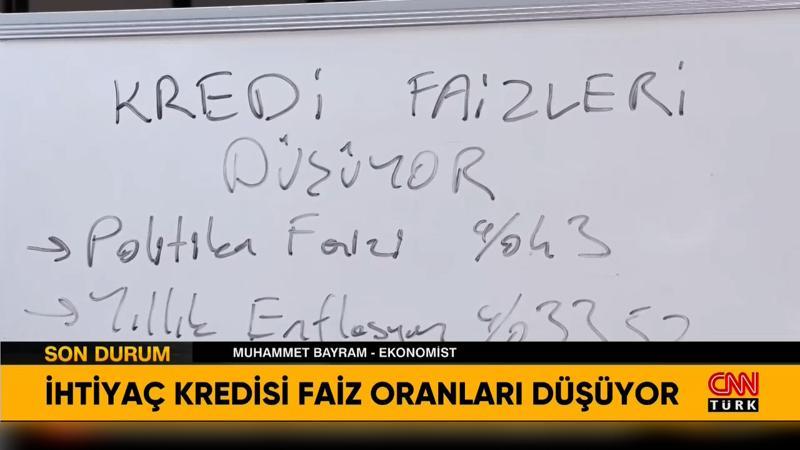 KREDİ FAİZLERİ
DÜŞÜYOR
→ Politika Faizi %43
→ Yıllık Enflasyon %33 52
SON DURUM
MUHAMMET BAYRAM - EKONOMİST
İHTİYAÇ KREDİSİ FAİZ ORANLARI DÜŞÜYOR
CNN
TÜRK